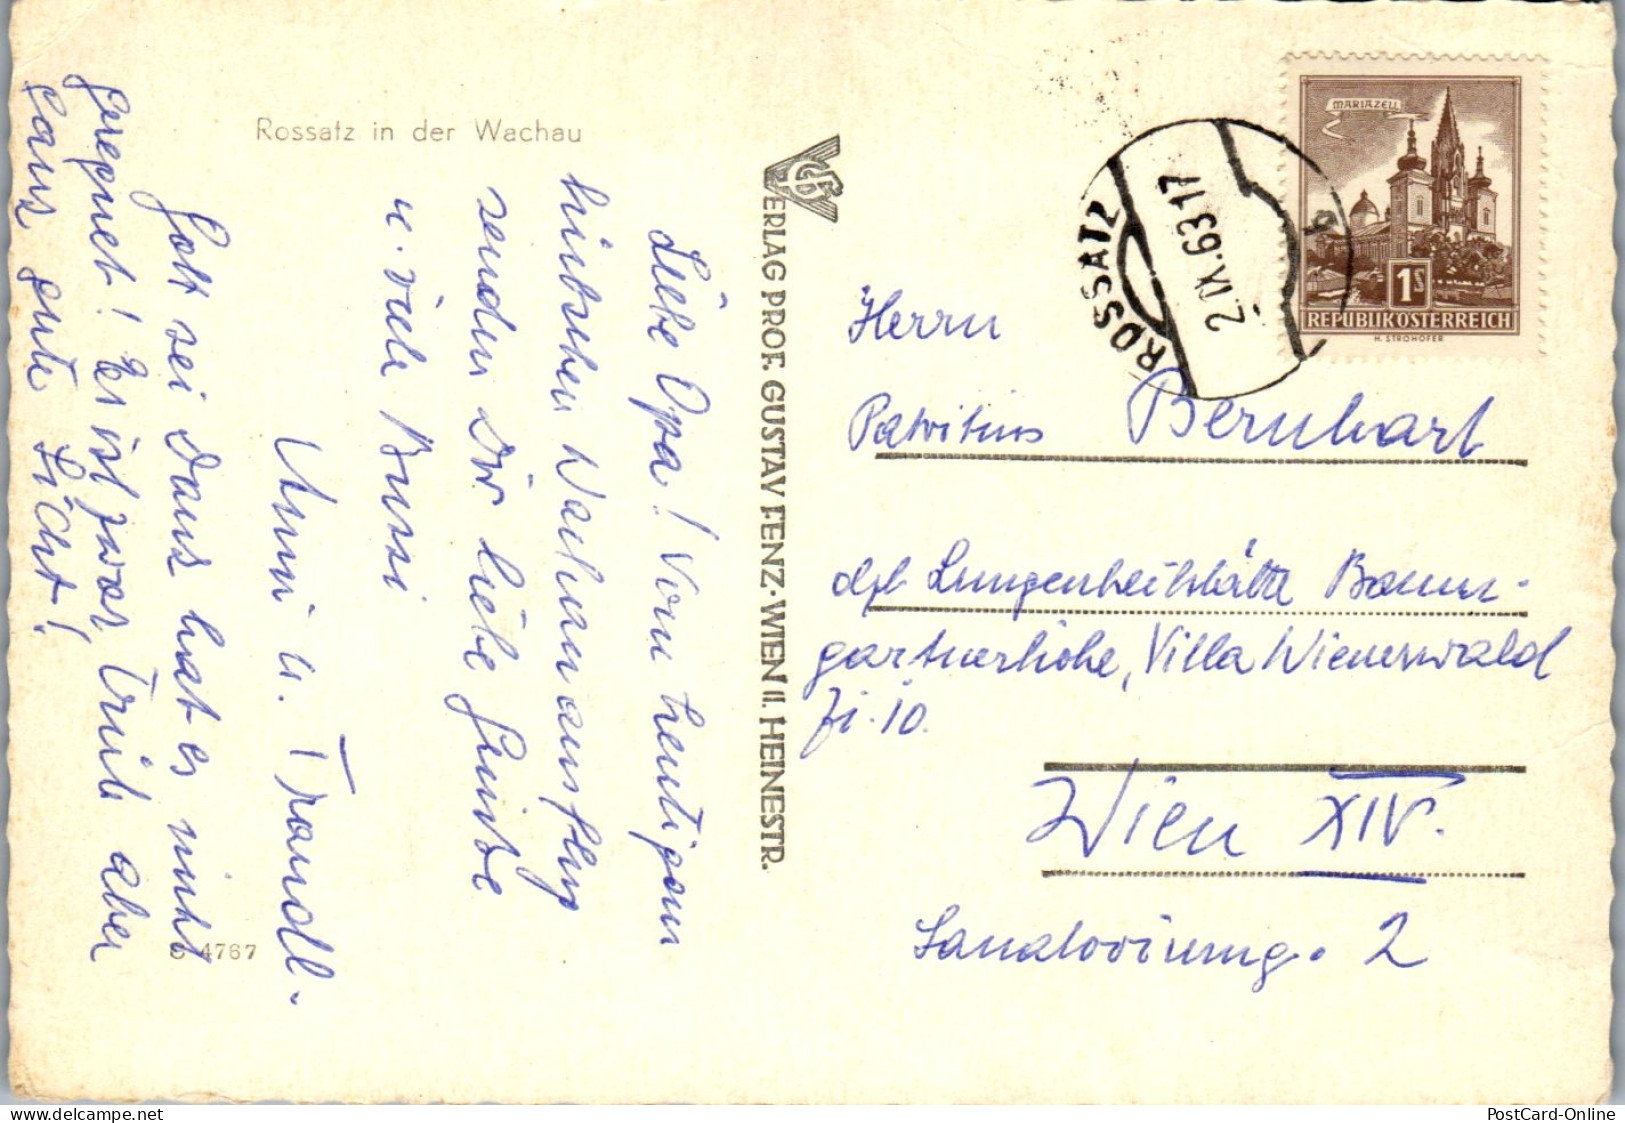 Rossatz in der Wachau
Liebe Opa! Vom heutigen
hübschen Wachauausflug
senden Dir liebe Grüsse
u. viele Bussi
Anni u. Traudl.
Gott sei Dank hat es nicht
geregnet! Es ist zwar trüb aber
ganz gute Sicht!
C 4767
VERLAG PROF. GUSTAV FENZ · WIEN II. HEINESTR.
ROSSATZ
2.IX.63 17
b
MARIAZELL
1S
REPUBLIK ÖSTERREICH
H. STROHOFER
Herrn
Patritius Bernhart
dzt Lungenheilstätte Baum-
gartnerhöhe, Villa Wienerwald
Zi. 10.
Wien XIV.
2
PostCard-Online
www.delcampe.net